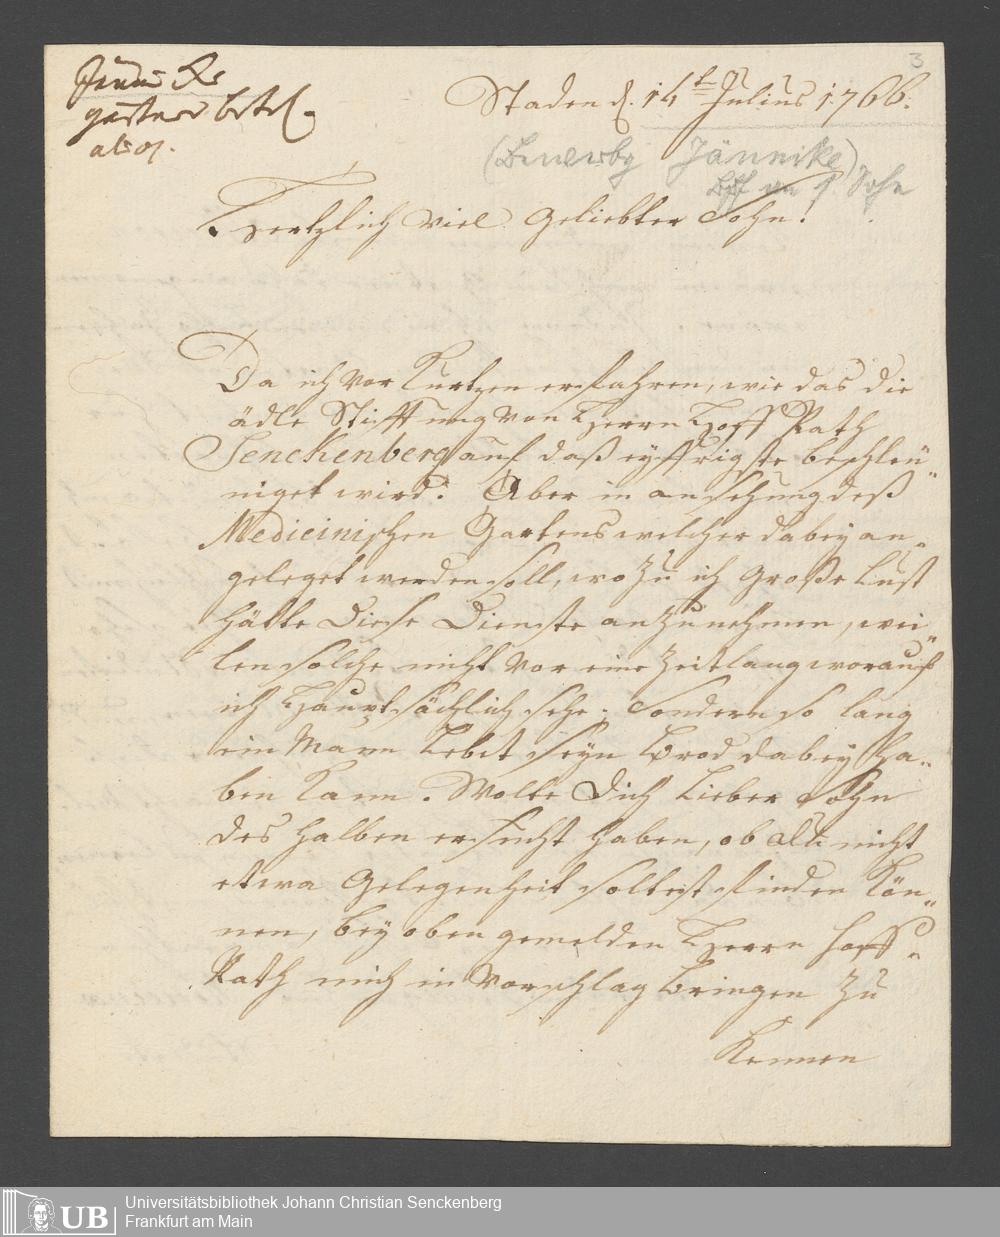 3
Staden d. 14t Julius 1766.
gärtner betr.
(Bewerbg Jännike)
Bf an s. Sohn
Hertzlich viel Geliebter Sohn!
Da ich vor Kurtzen erfahren, wie das die
ädle Stifftung von Herrn Hoff Rath
Senckenberg auf daß eyffrigste beschleu„
niget wird: Aber in ansehung deß
Medicinischen Gartens welcher dabey an„
geleget werden soll, wo zu ich Große Lust
hätte Diese Dienste anzunehmen, wei„
len solche nicht vor eine Zeitlang worauf
ich Hauptsächlich sehe: sondern so lang
ein Mann Lebet seyn Brod dabey ha„
ben Kann. Wolte Dich Lieber Sohn
des halben ersucht haben, ob du nicht
etwa Gelegenheit soltest finden Kön„
nen, bey oben gemelden Herrn Hoff„
Rath mich in Vorschlag bringen zu
Kennen
Universitätsbibliothek Johann Christian Senckenberg
Frankfurt am Main
UB